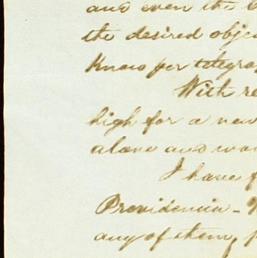 and even the
the desired obje
Know per telegra
With re
high for a new
alone and wou
I have f
Providencia - 
any of them, f